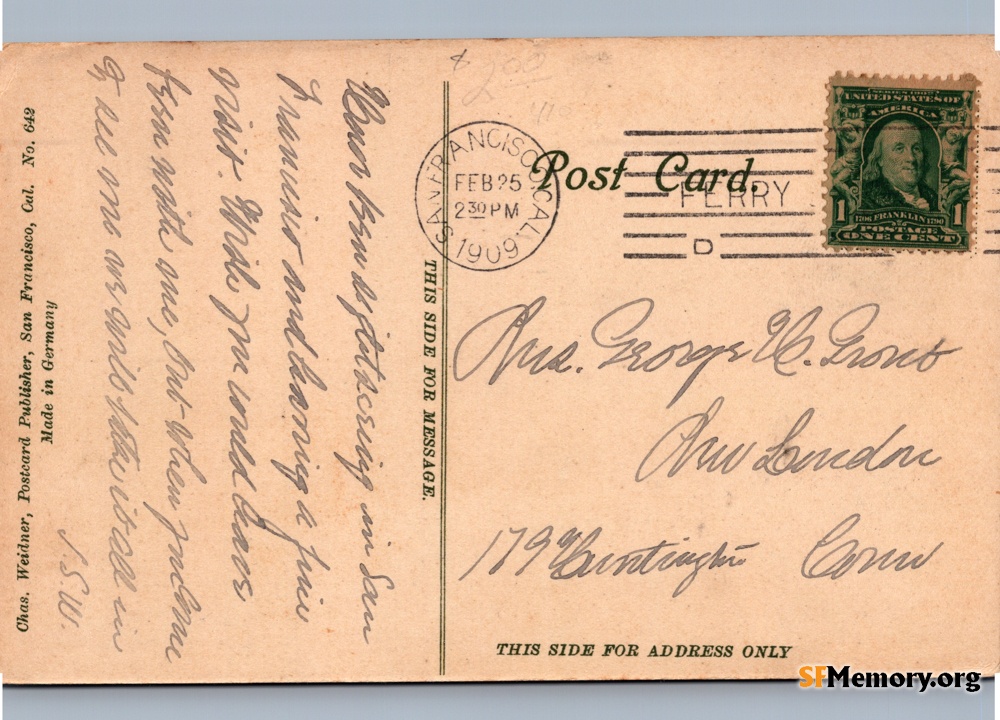 Chas. Weidner, Postcard Publisher, San Francisco, Cal. No. 642
Made in Germany
Have been sightseeing in San
Francisco and having a fine
visit. Wish you could have
been with me, but when you come
to see me we will take it all in
J.S.W.
THIS SIDE FOR MESSAGE.
$2.00
SAN FRANCISCO, CAL.
FEB 25
2 30 PM
1909
FERRY
D
Post Card.
SERIES 1902
UNITED STATES OF
AMERICA
1706 FRANKLIN 1790
1 POSTAGE 1
ONE CENT
Mrs. George H.
New London
179 Huntington Conn
THIS SIDE FOR ADDRESS ONLY
SFMemory.org